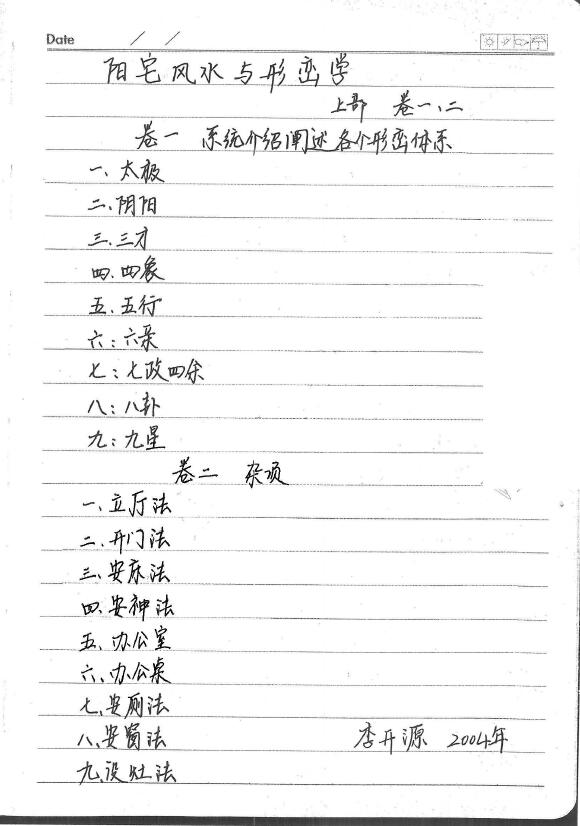 Date / /
阳宅风水与形峦学
上部 卷一、二
卷一 系统介绍阐述各个形峦体系
一、太极
二、阴阳
三、三才
四、四象
五、五行
六：六亲
七：七政四余
八：八卦
九：九星
卷二 杂项
一、立厅法
二、开门法
三、安床法
四、安神法
五、办公室
六、办公桌
七、安厕法
八、安窗法
李开源 2004年
九、设灶法